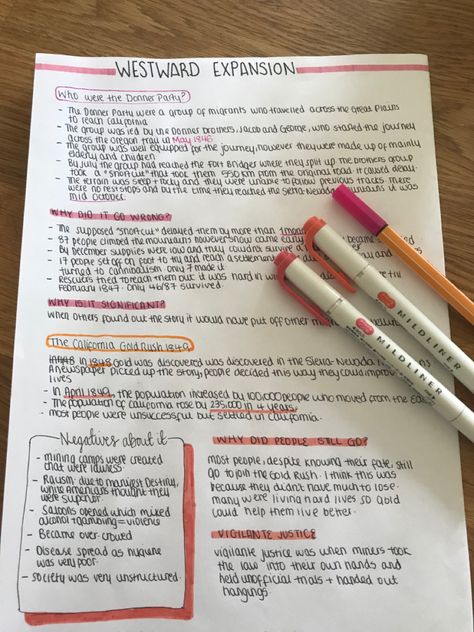 WESTWARD EXPANSION
Who were the Donner Party?
- The Donner Party were a group of migrants who travelled across the Great Plains
to reach California
- The group was led by the Donner brothers, Jacob and George, who started the journey
across the Oregon trail in May 1846
- The group was well equipped for the journey, however they were made up of mainly
elderly and children
- By July the group had reached the Fort Bridger where they split up the brothers group
took a "shortcut" that took them 550km from the original road. It caused delay.
- The terrain was steep + rocky and they were unable to follow previous tracks. There
were no rest stops and by the time they reached the Sierra Nevada mountains it was
mid October
WHY DID IT GO WRONG?
- The supposed "shortcut" delayed them by more than 1 month
- 87 people climbed the mountains however snow came early
- By december supplies were low and they couldn't survive a
- 17 people set off on foot to try and reach a settlement
turned to cannibalism only 7 made it
- Rescuers tried to reach them but it was hard in
february 1847. Only 46/87 survived.
WHY IS IT SIGNIFICANT?
When others found out the story it would have put off other
The California Gold Rush 1849
- In 1848 gold was discovered was discovered in the Sierra Nevada
A newspaper picked up the story, people decided this way they could improve
lives
- In April 1849, the population increased by 100,000 people who moved from the
- The population of California rose by 235,000 in 4 years
- most people were unsuccessful but settled in California.
Negatives about it
- mining camps were created
that were lawless
- Racism due to manifest Destiny,
white Americans thought they
were superior
- Saloons opened which mixed
alcohol + gambling = violence
- Became over crowd
- Disease spread as hygiene
was very poor
- Society was very unstructured.
WHY DID PEOPLE STILL GO?
most people, despite knowing their fate, still
go to join the Gold Rush. I think this was
because they didn't have much to lose.
many were living hard lives so Gold
could help them live better.
VIGILANTE JUSTICE
vigilante justice was when miners took
the law into their own hands and
held unofficial trials + handed out
hangings.
MILDLINER
MILDLINER